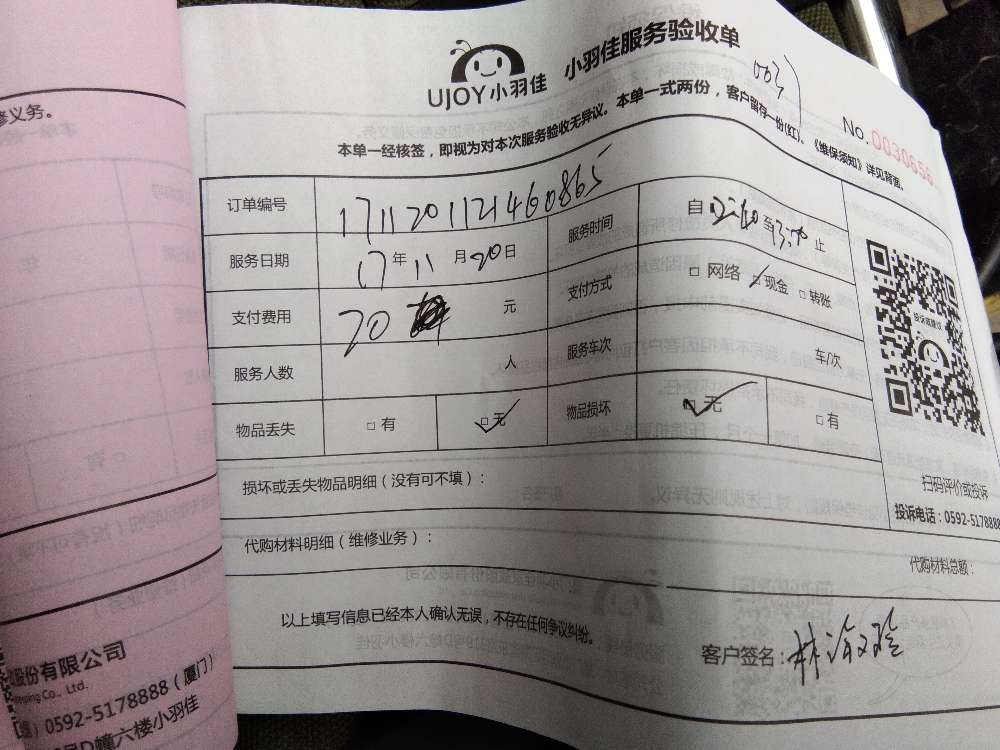 修义务。
UJOY小羽佳 小羽佳服务验收单
003
No.0030656
本单一经核签，即视为对本次服务验收无异议。本单一式两份，客户留存一份(红)、《维保须知》详见背面。
订单编号 1711201121460865
服务日期 17年11月20日 服务时间 自 至 止
支付费用 20 元 支付方式 □网络 □现金 □转账
服务人数 人 服务车次 车/次
物品丢失 □有 □无 物品损坏 □无 □有
扫码评价或投诉
投诉电话：0592-5178888
损坏或丢失物品明细（没有可不填）：
代购材料明细（维修业务）： 代购材料总额：
以上填写信息已经本人确认无误，不存在任何争议纠纷。
客户签名：林
股份有限公司
eping Co., Ltd.
0592-5178888（厦门）
D幢六楼小羽佳